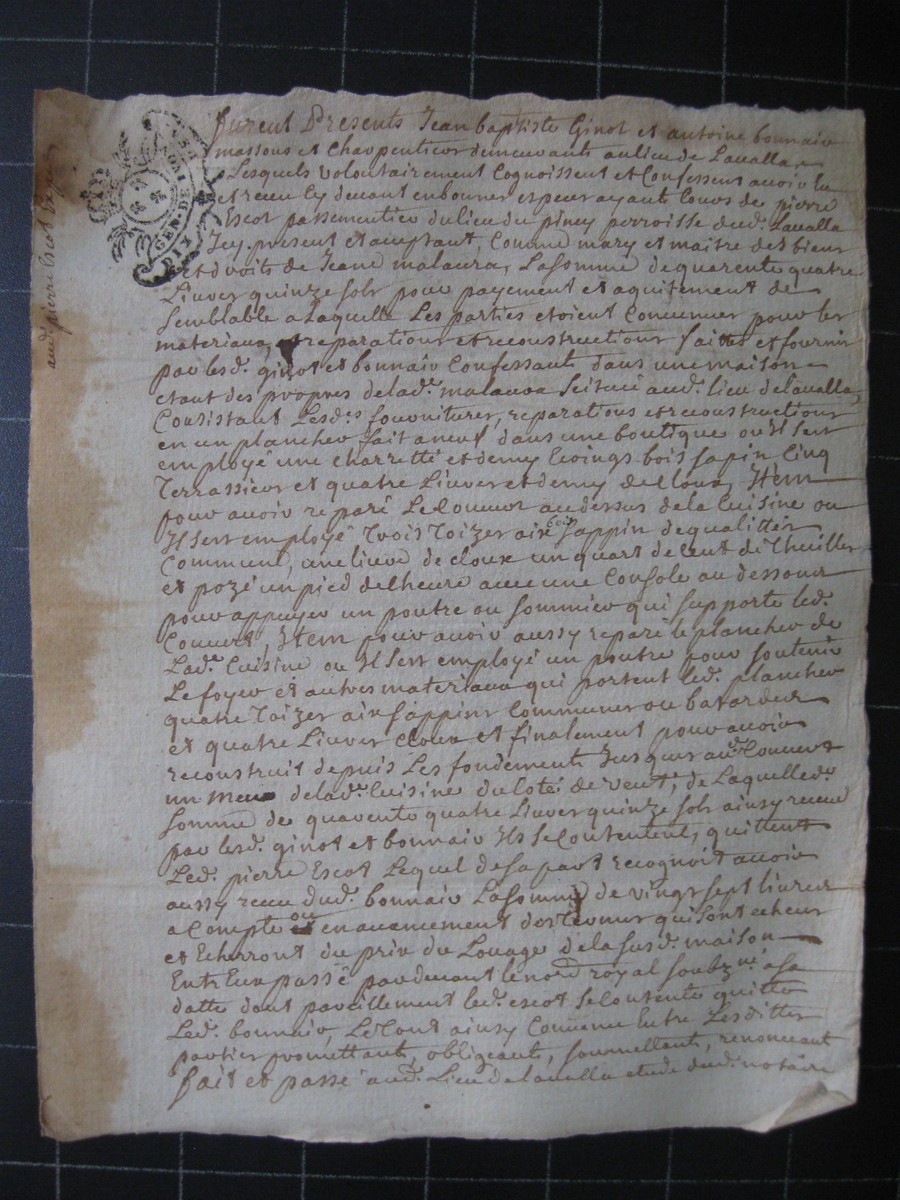 GEN. DE LYON
DIX
furent Presents Jean baptiste Ginot et antoine bonnair
massons et Charpentiers demeurants au lieu de Lavalla
Lesquels volontairement Cognoissent et Confessent avoir eu
et receu Cy devant en bonnes et peur ayant Cours de pierre
Escot passementier du lieu du piney perroisse dud. Lavalla
Icy present et acceptant, Comme mary et maitre des biens
et droits de Jeane malaura, La somme de quarente quatre
Livres quinze sols pour payement et aquitement de
semblable a Laquelle Les parties etoient Convenues pour les
materiaux, et reparations et reconstructions faittes et fournir
par lesd. ginot et bonnair Confessant dans une maison
etant des propres de lad. malaura scituée aud. lieu de lavalla,
Consistant Lesdes. fournitures, reparations et reconstructions
en un plancher fait a neuf dans une boutique ou Il sest
employé une charrette et demy bois sapin Cinq
Terrassiers et quatre Livres et demy de Cloux, Item
pour avoir reparé Le Couvert au dessus de la Cuisine ou
Il sest employé trois Toizes aix bois sappin de qualittés
Commune, une livre de cloux un quart de Cent de Thuilles
et pozé un pied delheure avec une Console au dessour
pour appuyer un poutre ou sommier qui supporte led.
Couvert, Item pour avoir aussy reparé le plancher de
Lade. Cuisine ou Il sest employé un poutre pour soutenir
Le foyer et autres materiaux qui portent led. plancher
quatre Toizes aix sappins Communes ou batardes
et quatre Livres Cloux et finalement pour avoir
reconstruit depuis Les fondements Jusques aud. Couvert
un de lade. Cuisine du Coté de vent, de Laquelle de.
somme de quarente quatre Livres quinze sols ainsy receue
par lesd. ginot et bonnair Ils se Contentent, quittent
Led. pierre Escot Lequel de sa part recognoit avoir
aussy receu dud. bonnair La somme de vingt sept livres
a Compte ou en avancement des termes qui sont echeus
et Echerront du prix du Louage de la susd. maison
Entr Eux passé par devant le nore. royal soubzné. a sa
datte dont pareillement led. escot se Contente quitte
Led. bonnair, Le tout ainsy Convenu Entre Lesdittes
parties promettants, obligeants, soumettants, renonceant
fait et passé aud. Lieu de lavalla etude dud. notaire
aud. pierre Escot